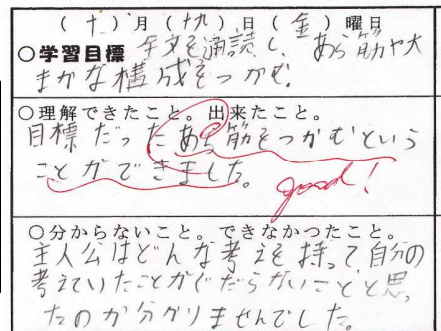 (十)月(十九)日(金)曜日
○学習目標 全文を通読し、あら筋や大
まかな構成をつかむ。
○理解できたこと。出来たこと。
目標だったあら筋をつかむという
ことができました。
good!
○分からないこと。できなかつたこと。
主人公はどんな考えを持って、自分の
考えていたことがくだらないことと思っ
たのか分かりませんでした。